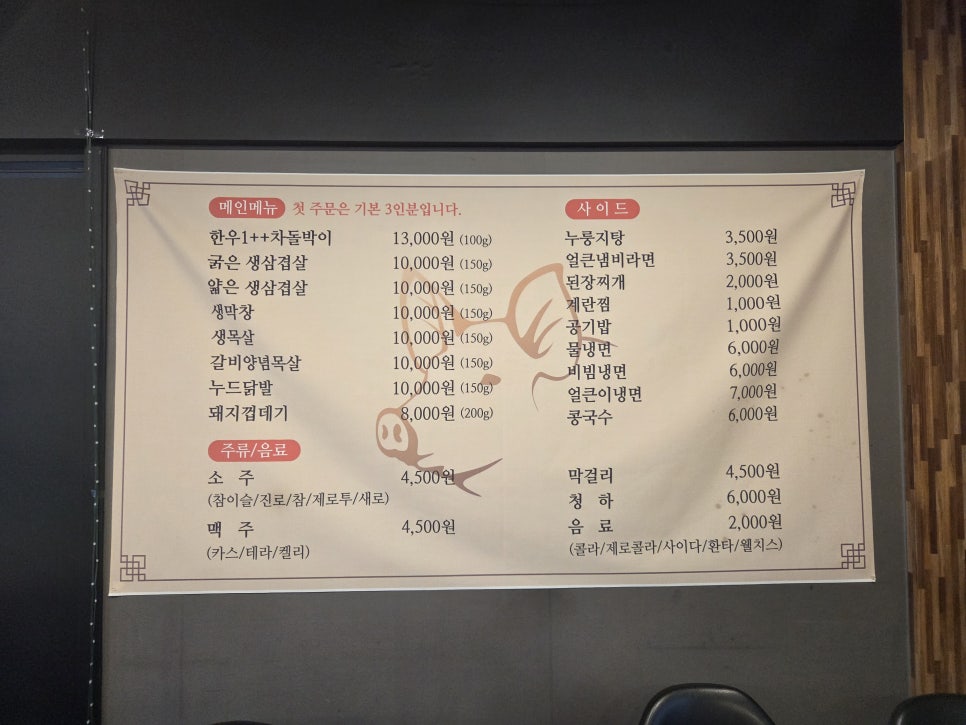 메인메뉴 첫 주문은 기본 3인분입니다.
한우1++차돌박이 13,000원 (100g)
굵은 생삼겹살 10,000원 (150g)
얇은 생삼겹살 10,000원 (150g)
생막창 10,000원 (150g)
생목살 10,000원 (150g)
갈비양념목살 10,000원 (150g)
누드닭발 10,000원 (150g)
돼지껍데기 8,000원 (200g)
사이드
누룽지탕 3,500원
얼큰냄비라면 3,500원
된장찌개 2,000원
계란찜 1,000원
공기밥 1,000원
물냉면 6,000원
비빔냉면 6,000원
얼큰이냉면 7,000원
콩국수 6,000원
주류/음료
소 주 4,500원
(참이슬/진로/참/제로투/새로)
맥 주 4,500원
(카스/테라/켈리)
막걸리 4,500원
청 하 6,000원
음 료 2,000원
(콜라/제로콜라/사이다/환타/웰치스)